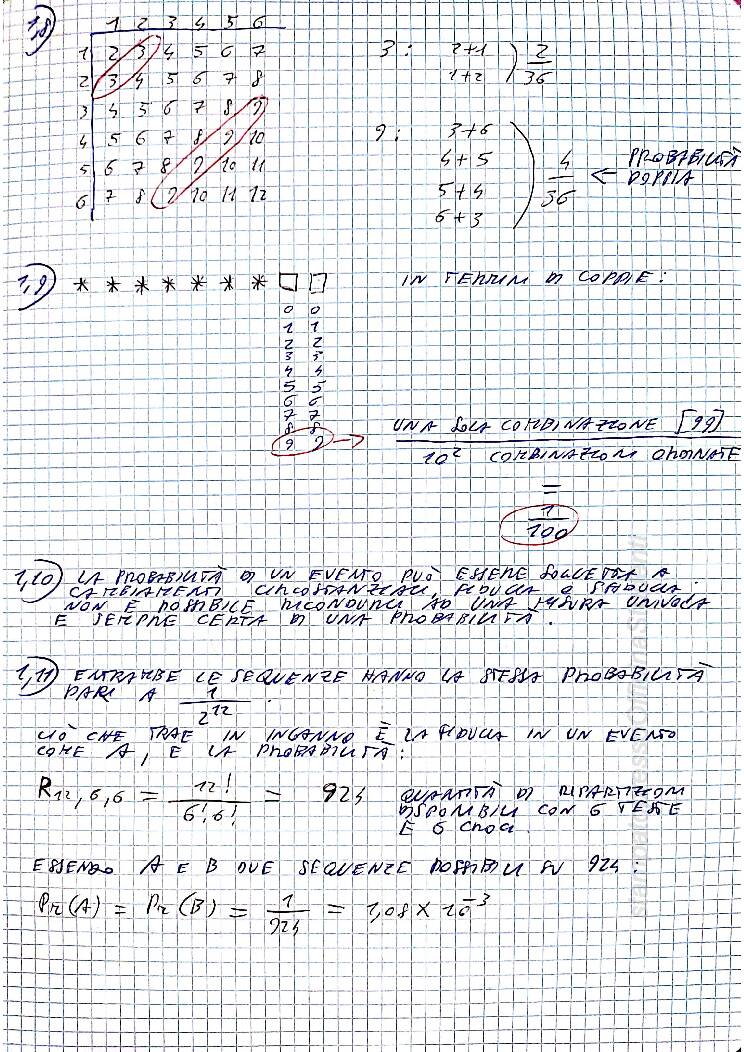 1,8)
1 2 3 4 5 6
1 2 3 4 5 6 7
2 3 4 5 6 7 8
3 4 5 6 7 8 9
4 5 6 7 8 9 10
5 6 7 8 9 10 11
6 7 8 9 10 11 12
3: 2+1
1+2
2/36
9: 3+6
4+5
5+4
6+3
4/36 ← PROBABILITÀ
DOPPIA
1,9) * * * * * * * □ □ IN TERMINI DI COPPIE:
0 0
1 1
2 2
3 3
4 4
5 5
6 6
7 7
8 8
9 9 →
UNA SOLA COMBINAZIONE [99]
10² COMBINAZIONI ORDINATE
=
1/100
1,10) LA PROBABILITÀ DI UN EVENTO PUÒ ESSERE SOGGETTA A
CAMBIAMENTI CIRCOSTANZIALI, FIDUCIA O SFIDUCIA.
NON È POSSIBILE RICONDURCI AD UNA MISURA UNIVOCA
E SEMPRE CERTA DI UNA PROBABILITÀ.
1,11) ENTRAMBE LE SEQUENZE HANNO LA STESSA PROBABILITÀ
PARI A 1/2¹² .
CIÒ CHE TRAE IN INGANNO È LA FIDUCIA IN UN EVENTO
COME A, E LA PROBABILITÀ:
R12,6,6 = 12!/6!6! = 924 QUANTITÀ DI RIPARTIZIONI
DISPONIBILI CON 6 TESTE
E 6 CROCI.
ESSENDO A E B DUE SEQUENZE POSSIBILI SU 924:
Pr(A) = Pr(B) = 1/924 = 1,08 × 10⁻³